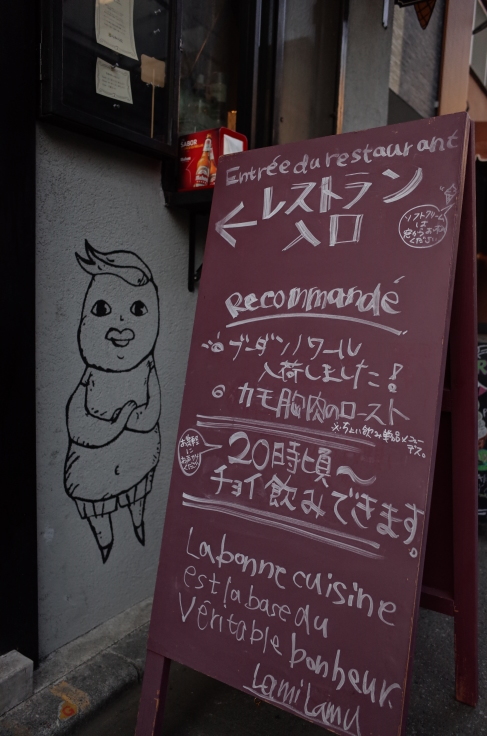 Entrée du restaurant
← レストラン
入口
ソフトクリーム
は
ください
Recommandé
ブーダンノワール
入荷しました!
◎ カモ胸肉のロースト
※ちょい飲み単品メニュー
デス。
お気軽
に
ください
20時頃〜
チョイ飲みできます。
La bonne cuisine
est la base du
Véritable bonheur
Lamilamu